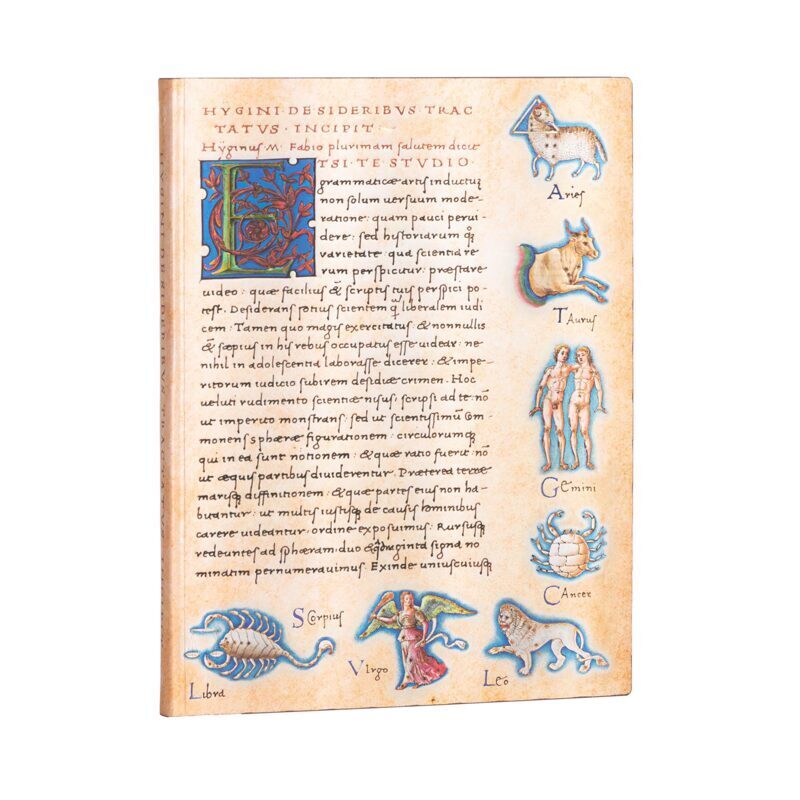 HYGINI · DE SIDERIBVS TRAC
TATVS · INCIPIT ·
Hyginus M · Fabio plurimam salutem dicit
ETSI · TE STUDIO ·
grammaticæ artis inductuȝ
non solum uersuum mode-
ratione : quam pauci perui-
dere : sed historiarum qȝ
varietate qua scientia re
rum perspicitur : præstare
uideo : quæ facilius & scriptis tuis perspici po-
test. Desiderans potius scientem q̄ liberalem iudi
cem : Tamen quo magis exercitatus : & nonnullis
& sæpius in his rebus occupatus esse uidear : ne
nihil in adolescentia laborasse dicerer : & impe-
ritorum iudicio subirem desidiæ crimen. Hoc
ueluti rudimento scientiæ nisus, scripsi ad te : nō
ut imperito monstrans : sed ut scientissimū com-
monens sphæræ figurationem : circulorumqȝ
qui in ea sunt notionem : & quæ ratio fuerit : nō
ut æquis partibus diuiderentur. Præterea terræ
marisqȝ diffinitionem : & quæ partes eius non ha-
bitantur : ut multis iustisqȝ de causis hominibus
carere uideantur, ordine exposuimus. Rursusqȝ
redeuntes ad sphæram, duo & quadraginta signa no
minatim pernumerauimus. Exinde uniuscuiusqȝ
Aries
Taurus
Gemini
CAncer
Leo
VIrgo
SCorpius
Libra